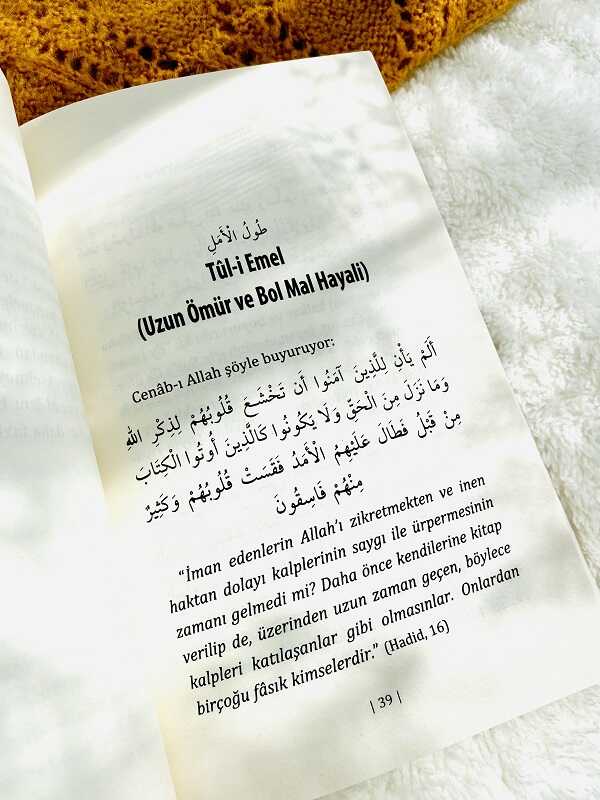 طُولُ الْأَمَلِ
Tûl-i Emel
(Uzun Ömür ve Bol Mal Hayali)
Cenâb-ı Allah şöyle buyuruyor:
أَلَمْ يَأْنِ لِلَّذِينَ آمَنُوا أَن تَخْشَعَ قُلُوبُهُمْ لِذِكْرِ اللهِ
وَمَا نَزَلَ مِنَ الْحَقِّ وَلَا يَكُونُوا كَالَّذِينَ أُوتُوا الْكِتَابَ
مِنْ قَبْلُ فَطَالَ عَلَيْهِمُ الْأَمَدُ فَقَسَتْ قُلُوبُهُمْ وَكَثِيرٌ
مِنْهُمْ فَاسِقُونَ
“İman edenlerin Allah’ı zikretmekten ve inen
haktan dolayı kalplerinin saygı ile ürpermesinin
zamanı gelmedi mi? Daha önce kendilerine kitap
verilip de, üzerinden uzun zaman geçen, böylece
kalpleri katılaşanlar gibi olmasınlar. Onlardan
birçoğu fâsık kimselerdir.” (Hadid, 16)
| 39 |